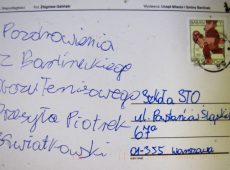 fot. Zbigniew Galiński
Wydawca: Urząd Miasta i Gminy Barlinek
Pozdrowienia
z Barlineckiego
obozu tenisowego
przesyła Piotrek
Kwiatkowski
Szkoła STO
ul. Powstańców Śląskich
67a
01-355 Warszawa